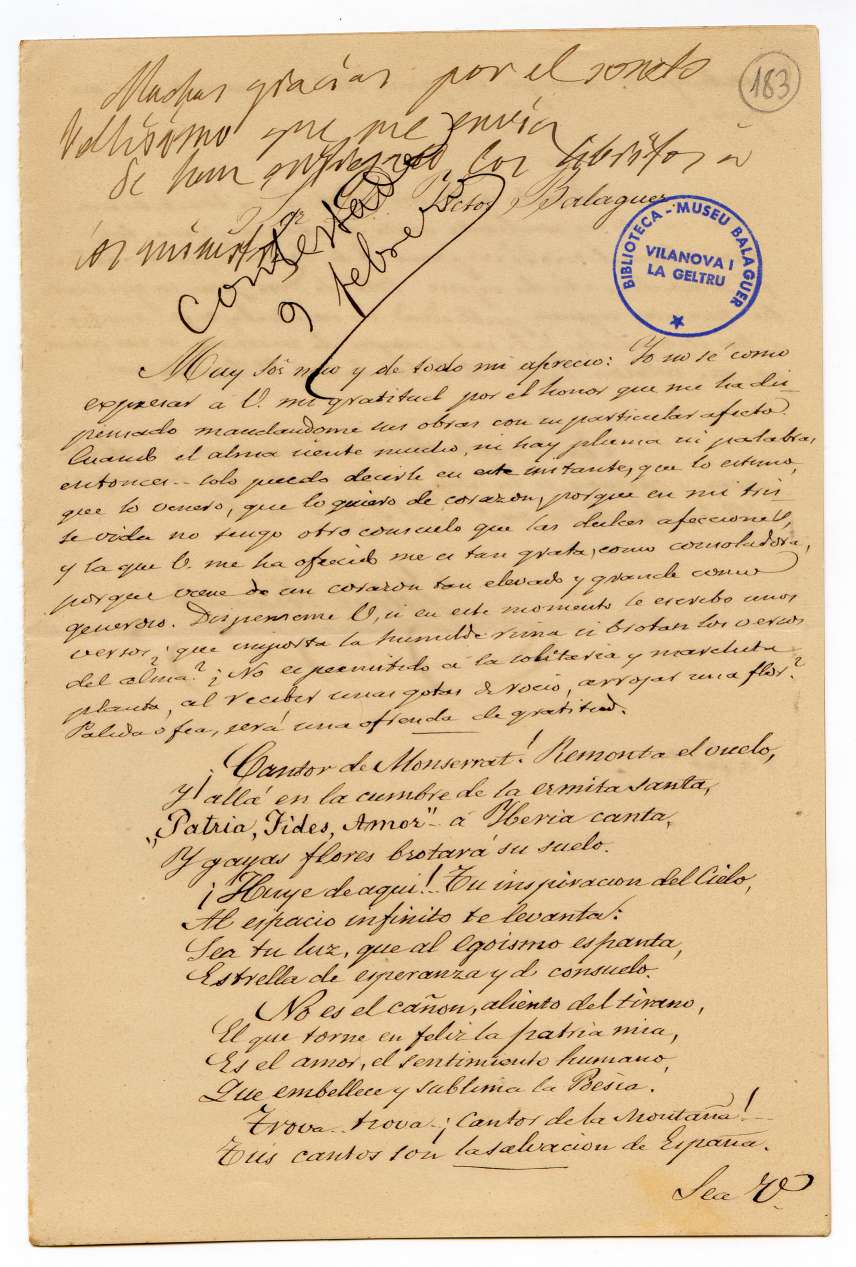 Muchas gracias por el soneto
bellisimo que me envia
183
Se han los libritos á
Sor Dn Victor Balaguer
los ministr
Contestada
9 febrero
BIBLIOTECA - MUSEU BALAGUER
VILANOVA I
LA GELTRU
Muy Sor mio y de todo mi aprecio: Yo no sé como
expresar á V. mi gratitud por el honor que me ha dis
pensado mandandome sus obras con su particular afecto.
Cuando el alma siente mucho, ni hay pluma ni palabras
entonces... solo puedo decirle en este instante, que lo estimo,
que lo venero, que lo quiero de corazon, porque en mi tris
te vida no tengo otro consuelo que las dulces afecciones,
y la que V. me ha ofrecido me es tan grata, como consoladora,
porque viene de un corazon tan elevado y grande como
generoso. Dispenseme V, si en este momento le escribo unos
versos; ¿que importa la humilde rima si brotan los versos
del alma? ¿No es permitido á la solitaria y marchita
planta, al recibir unas gotas de rocio, arrojar una flor?
Palida o fea, será una ofrenda de gratitud.
¡Cantor de Monserrat! Remonta el vuelo,
y allá en la cumbre de la ermita santa,
"Patria, Fides, Amor" á Yberia canta,
Y gayas flores brotará su suelo.
¡Huye de aqui!.. Tu inspiracion del Cielo,
Al espacio infinito te levanta:
Sea tu luz, que al egoismo espanta,
Estrella de esperanza y de consuelo.
No es el cañon, aliento del tirano,
El que torne en feliz la patria mia,
Es el amor, el sentimiento humano,
Que embellece y sublima la Poesia.
Trova... trova... ¡Cantor de la Montaña!
Tus cantos son la salvacion de España.
Sea V.